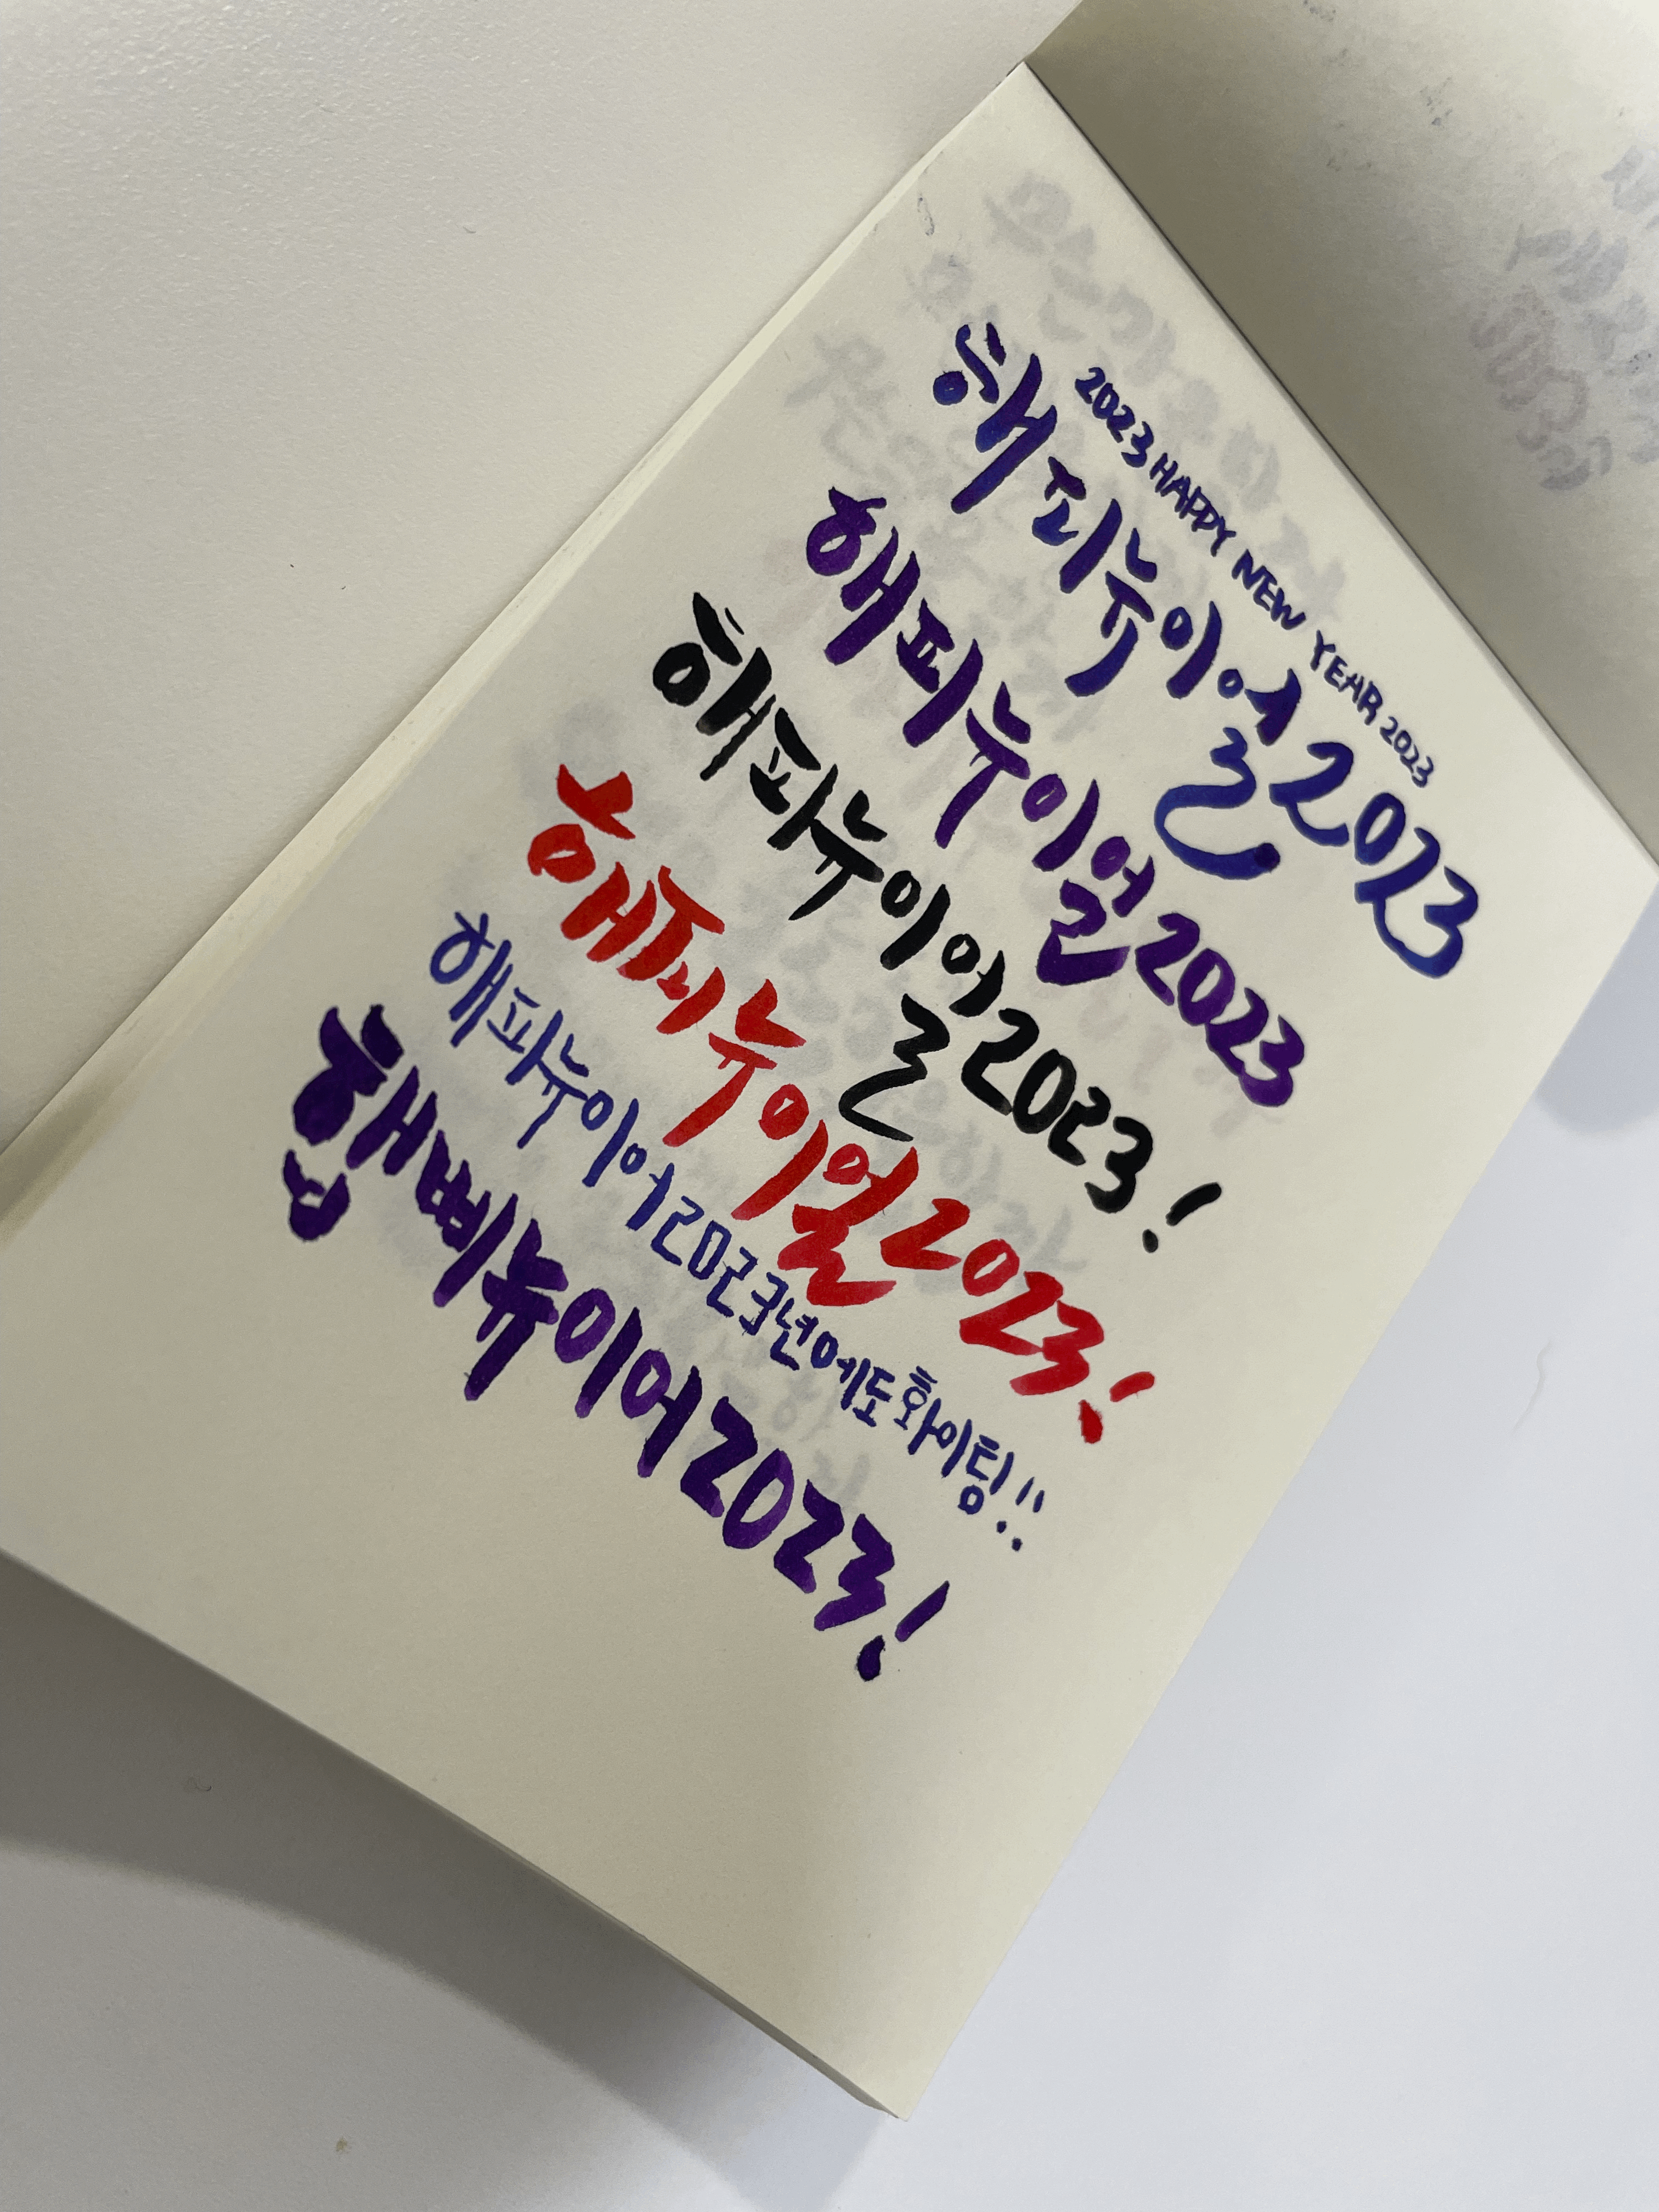 2023 HAPPY NEW YEAR 2023
해피뉴이얼2023
해피뉴이얼2023
해피뉴이얼2023!
해피뉴이얼2023!
해피뉴이어2023년에도화이팅!!
햅삐뉴이어2023!